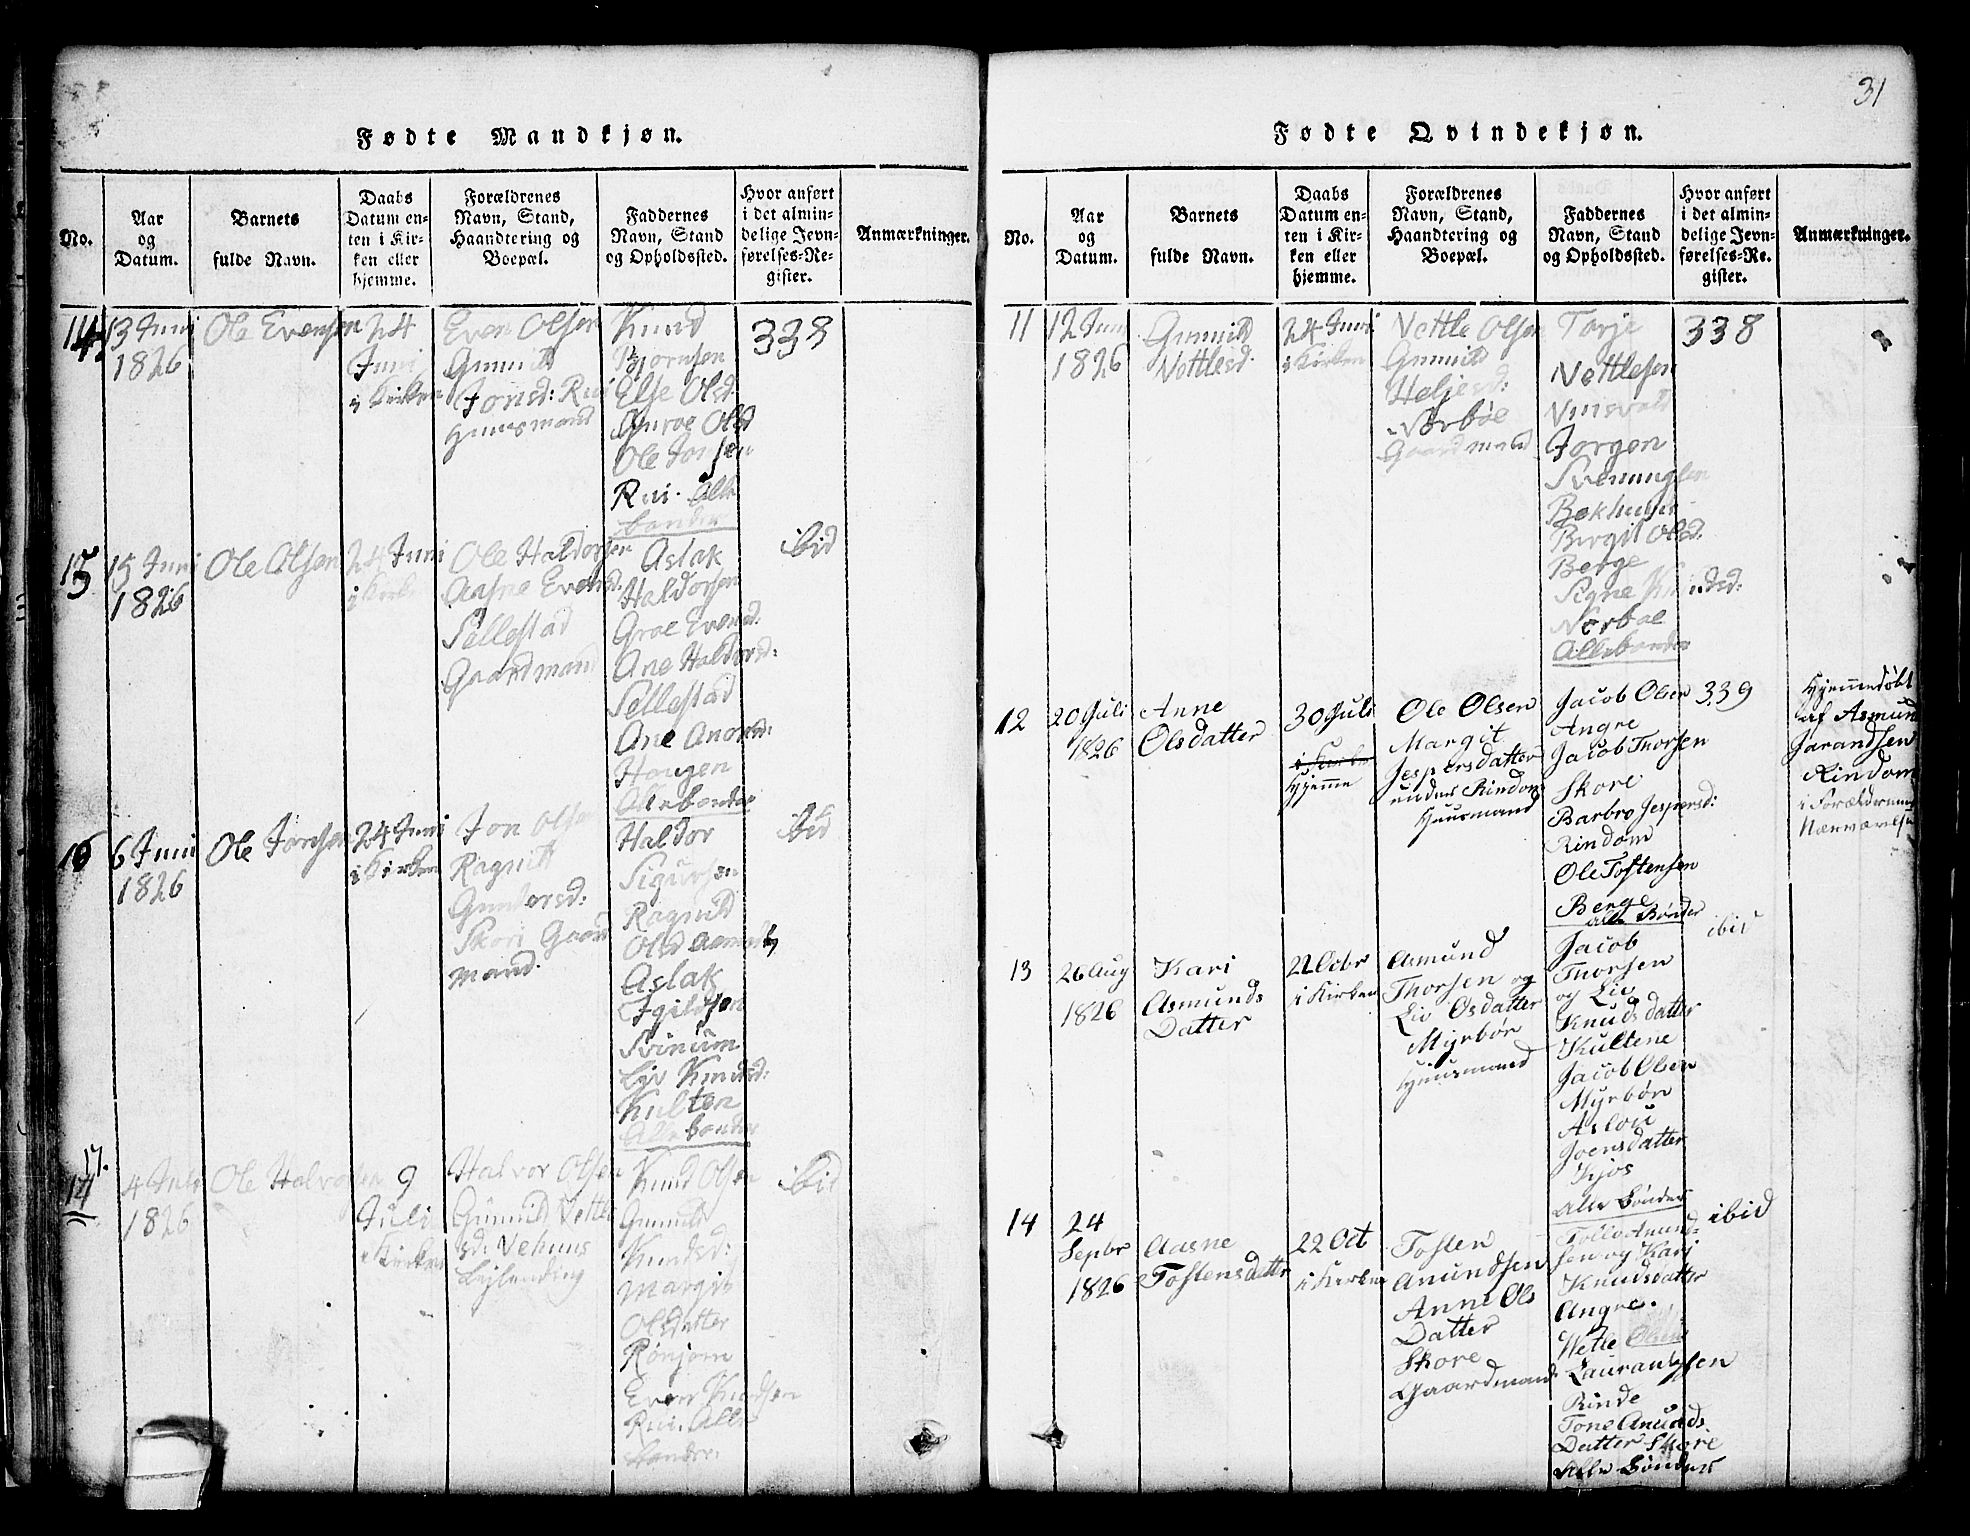 31
Fødte Mandkjøn.
No.
Aar
og
Datum.
Barnets
fulde Navn.
Daabs
Datum en-
ten i Kir-
ken eller
hjemme.
Forældrenes
Navn, Stand,
Haandtering og
Boepæl.
Faddernes
Navn, Stand
og Opholdssted.
Hvor anført
i det almin-
delige Jevn-
førelses-Re-
gister.
Anmærkninger.
14
13 Juni
1826
Ole Evensen
24
Juni
i Kirken
Even Olsen
Gunnild
Jonsd: Rui
Huusmand
Knud
Bjornsen
Else Olsd.
Guroe Olsd
Ole Jonsen
Rui. Alle
bønder
338
15
15 Juni
1826
Ole Olsen
24 Juni
i Kirken
Ole Haldorsen
Aasne Evensd.
Sellestad
Gaardmand
Aslak
Haldorsen
Groe Evensd:
Ane Haldorsd:
Sellestad
Ane
Haugen
Alle bønder
ibid
16
6 Juni
1826
Ole Jonsen
24 Juni
i Kirken
Jon Olsen
Ragnild
Gundersd:
Skori Gaard
mand.
Haldor
Sigursen
Ragnild
Olsd
Aslak
Svinum
Liv Knudsd:
Kulten
Alle bønder
ibid
17.
14
4 Juli
1826
Ole Halvorsen
9
Juli
i Kirken
Halvor Olsen
Gunnild Vettle
sd: Vehuus
Lejlending
Knud Olsen
Gunnild
Knudsd:
Margit
Olsdatter
Rønjom
Even Knudsen
Rui. Alle
bønder.
ibid
Fødte Qvindekjøn.
No.
Aar
og
Datum.
Barnets
fulde Navn.
Daabs
Datum en-
ten i Kir-
ken eller
hjemme.
Forældrenes
Navn, Stand,
Haandtering og
Boepæl.
Faddernes
Navn, Stand
og Opholdssted.
Hvor anført
i det almin-
delige Jevn-
førelses-Re-
gister.
Anmærkninger.
11
12 Juni
1826
Gunnild
Vettlesd.
24 Juni
i Kirken
Vettle Olsen
Gunnild
Heljesd:
Norbøe
Gaardmand
Torje
Vettlesen
Jorgen
Svenungsen
Bekhuus
Birgit Olsd.
Berge
Signe Knudsd:
Norboe
Alle bønder
338
12
20 Juli
1826
Anne
Olsdatter
30 Juli
i Kirken
Hjemme
Ole Olsen
Margit
Jespersdatter
under Rindom
Huusmand
Jacob Olsen
Angre
Jacob Thorsen
Skore
Barbro Jespersd:
Rindom
Ole Tostensen
Berge
alle Bønder
339
Hjemmedøbt
af Asmund
Jarandsen
Rindom
i Forældrenes
Nærværelse
13
26 Aug
1826
Kari
Asmunds
Datter
22 Octbr
i Kirken
Asmund
Thorsen og
Liv Osdatter
Myrbön
Huusmand
Jacob
Thorsen
og Liv
Knudsdatter
Kultene
Jacob Olsen
Myrbön
Aslou
Joensdatter
Kjos
Alle Bønder
ibid
14
24
Sepbr
1826
Aasne
Tostensdatter
22 Oct
i Kirken
Tosten
Anundsen
Anne Ols
Datter
Skore
Gaardmand
Anund-
sen og Kari
Knudsdatter
Angre.
Wetle Olsen
Rinde
Tone Anunds
Datter Skore
Alle Bønder
ibid